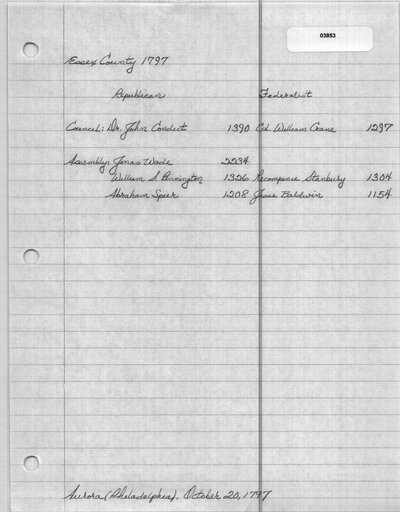 03853
Essex County 1797
Republican Federalist
Council: Dr. John Condict 1390 Col. William Crane 1297
Assembly: Jonas Wade 2234
William S. Pennington 1326 Recompence Stanbury 1304
Abraham Speer 1208 Jesse Baldwin 1154
Aurora (Philadelphia). October 20, 1797